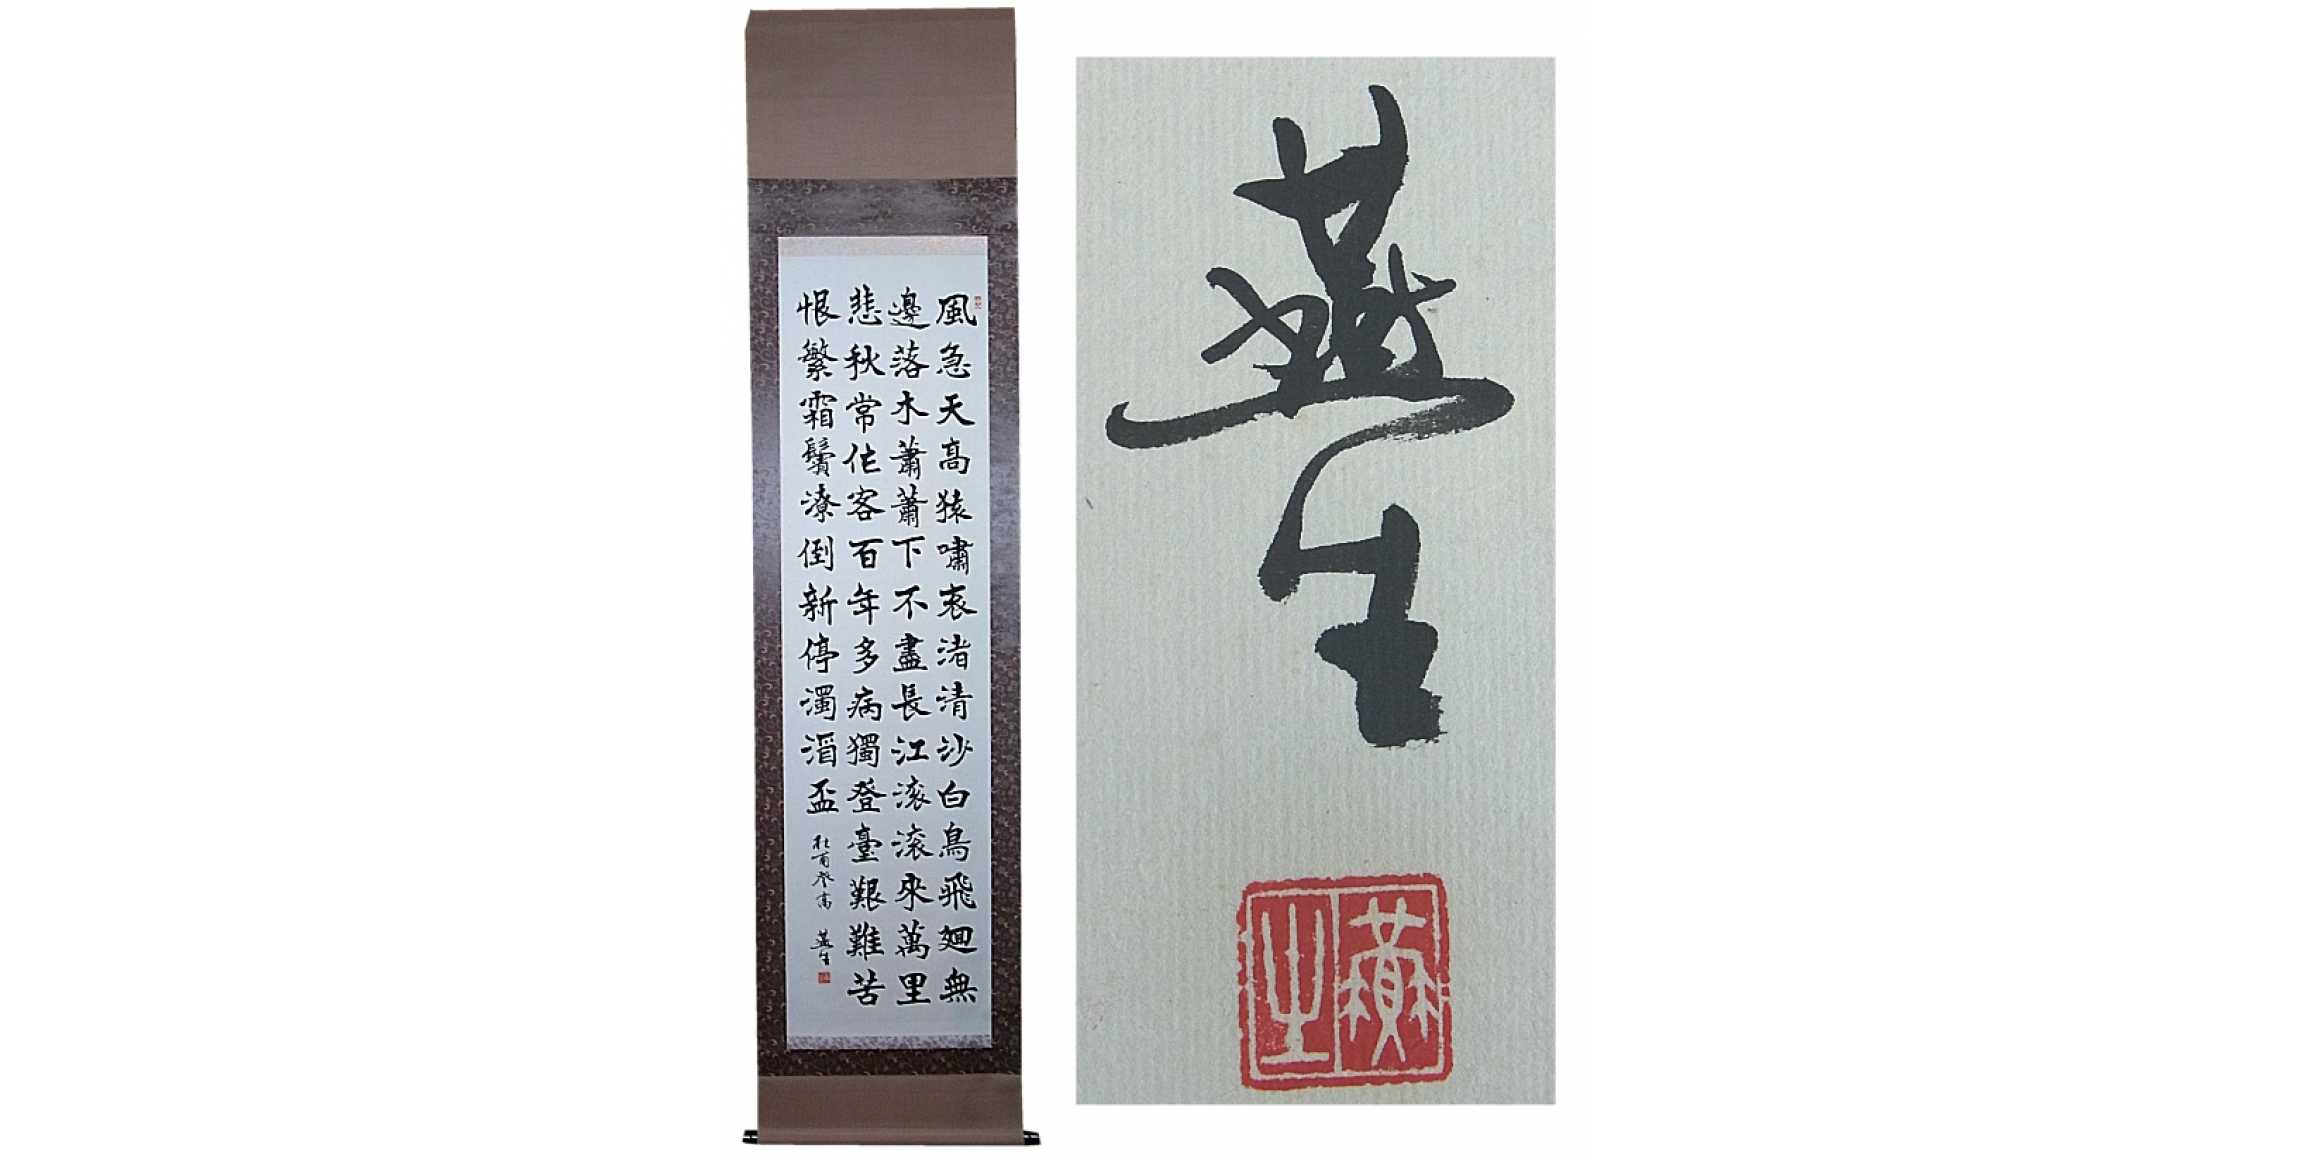 風急天高猿嘯哀渚清沙白鳥飛廻無
邊落木蕭蕭下不盡長江滚滚來萬里
悲秋常作客百年多病獨登臺艱難苦
恨繁霜鬢潦倒新停濁酒盃
杜甫登高
燕生
燕生
燕生